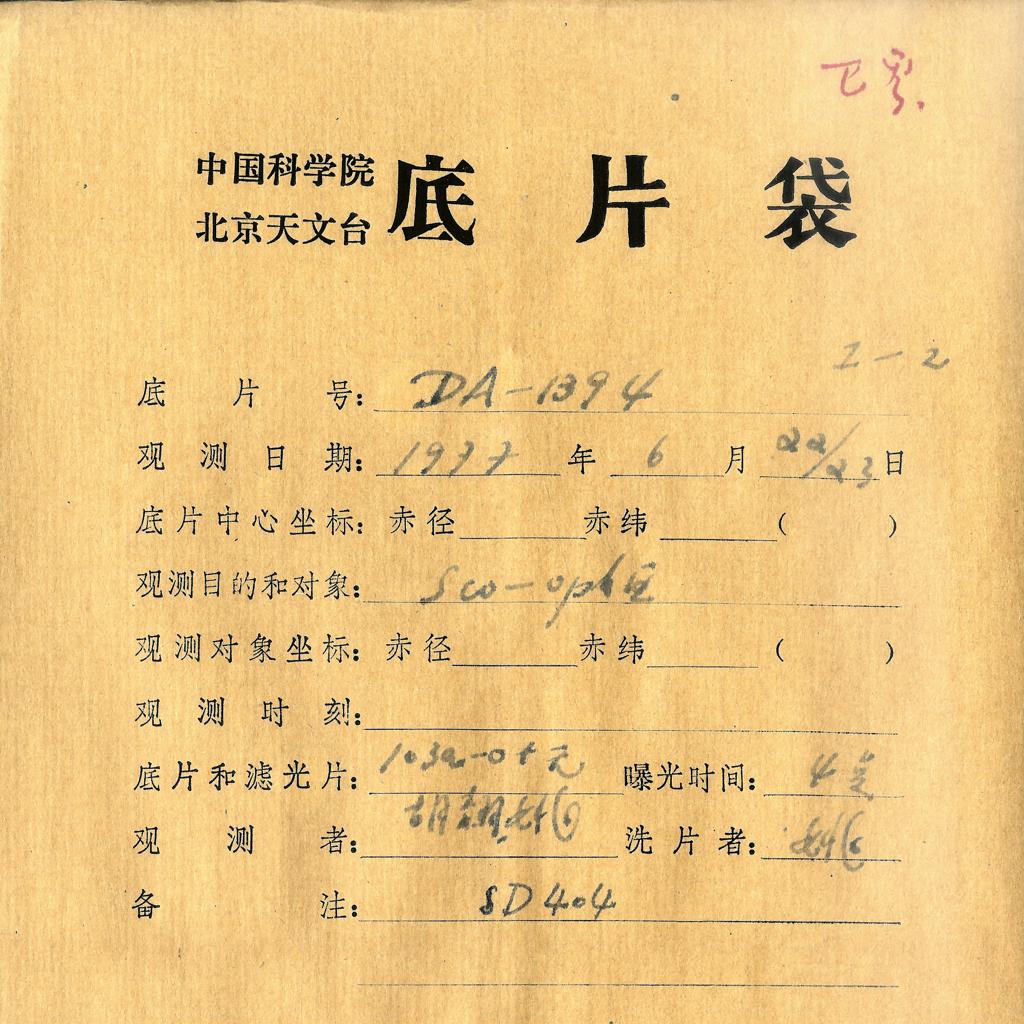 中国科学院
北京天文台 底片袋
I-2
底片号: DA-1394
观测日期: 1977 年 6 月 22/23 日
底片中心坐标: 赤径 赤纬 ( )
观测目的和对象: Sco-oph
观测对象坐标: 赤径 赤纬 ( )
观测时刻:
底片和滤光片: 103a-O+无 曝光时间: 4
观测者: 洗片者:
备注: SD404